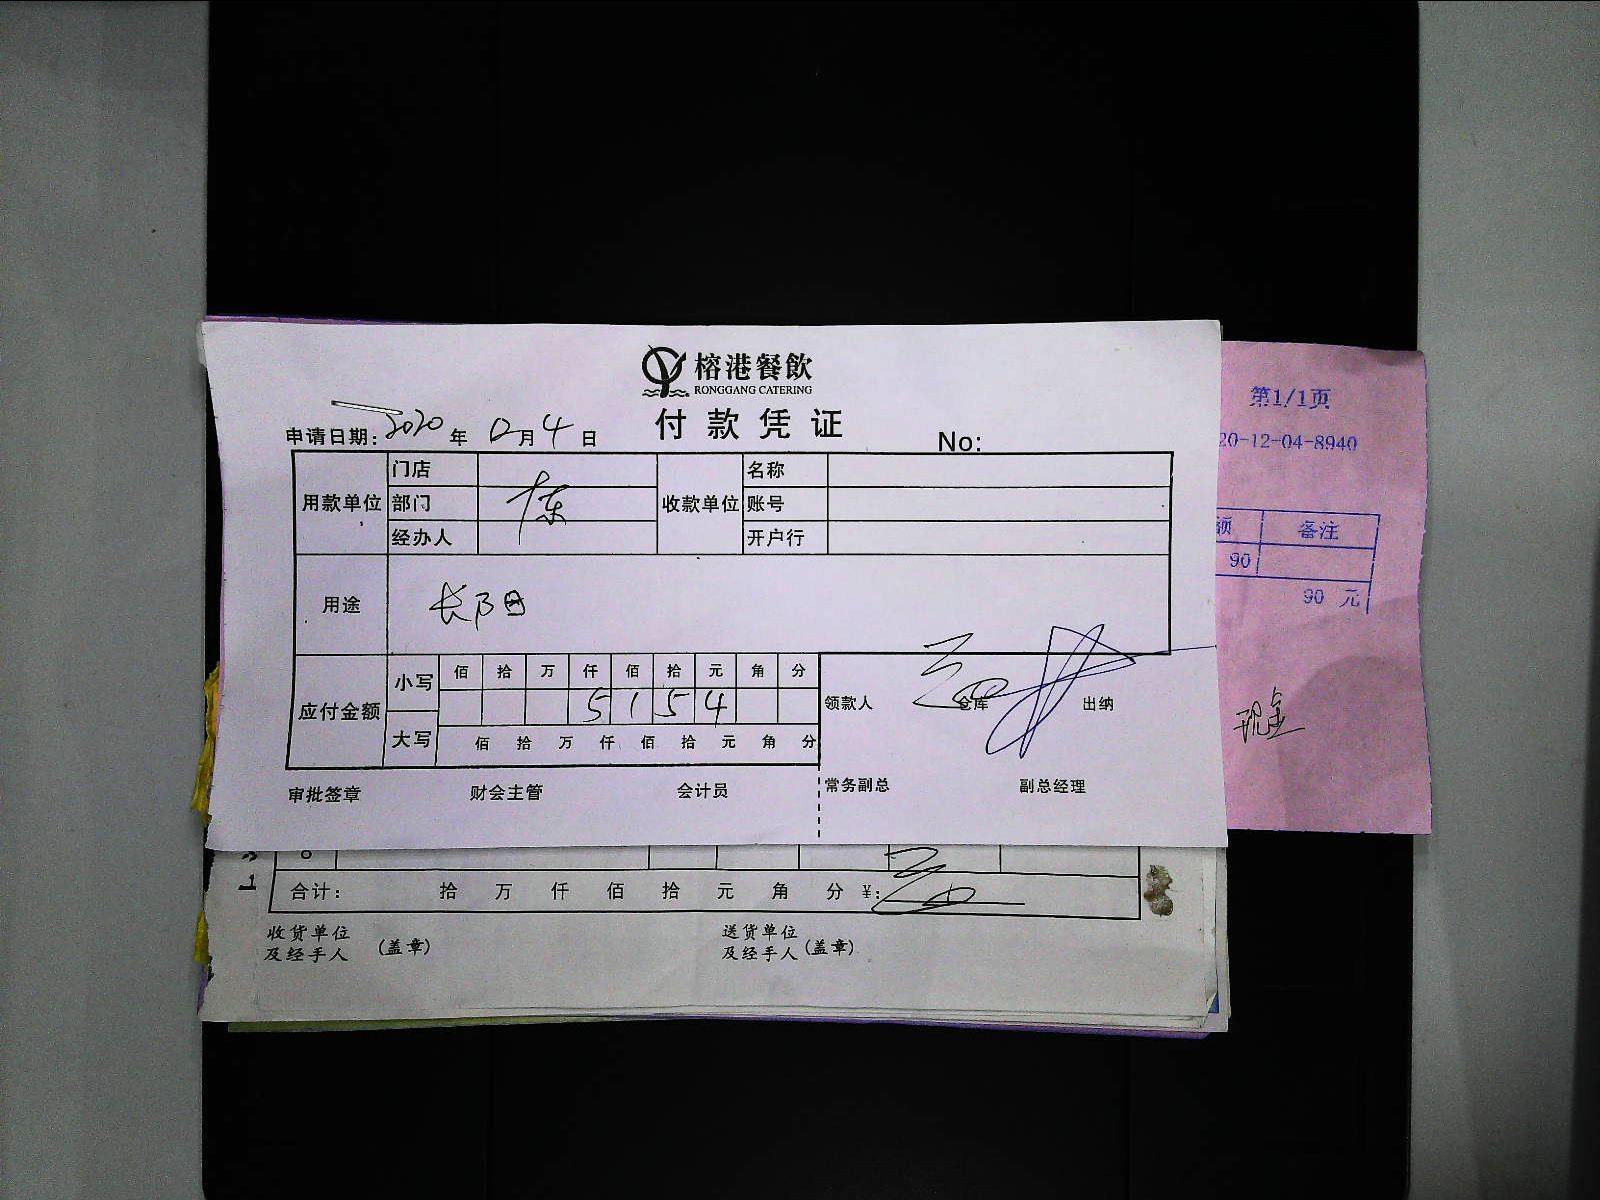 榕港餐飲
RONGGANG CATERING
付款凭证
申请日期: 2020 年 12 月 4 日
No:
用款单位 门店 收款单位 名称
部门 账号
经办人 开户行
用途
应付金额 小写 佰 拾 万 仟 佰 拾 元 角 分
5 1 5 4
大写 佰 拾 万 仟 佰 拾 元 角 分
领款人 仓库 出纳
审批签章 财会主管 会计员 常务副总 副总经理
合计: 拾 万 仟 佰 拾 元 角 分 ¥:
收货单位
及经手人 (盖章)
送货单位
及经手人 (盖章)
第1/1页
20-12-04-8940
额 备注
90
90 元
现金